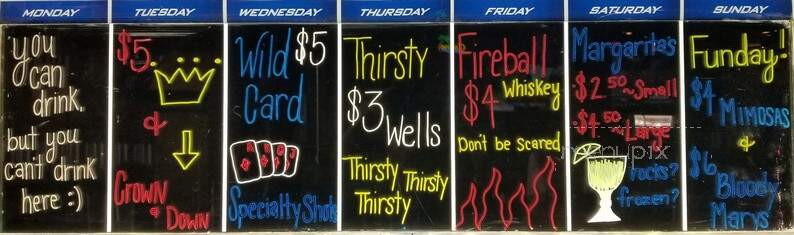 MONDAY
you
can
drink,
but you
can't drink
here :)
TUESDAY
$5
&
Crown
& Down
WEDNESDAY
Wild $5
Card
Specialty Shots
THURSDAY
Thirsty
$3
Wells
Thirsty Thirsty
Thirsty
FRIDAY
Fireball
$4 Whiskey
Don't be Scared
SATURDAY
Margarita's
$2 50 ~ Small
$4 50 ~ Large
menupix
rocks?
frozen?
SUNDAY
Funday!
$4 Mimosas
&
$6 Bloody
Marys